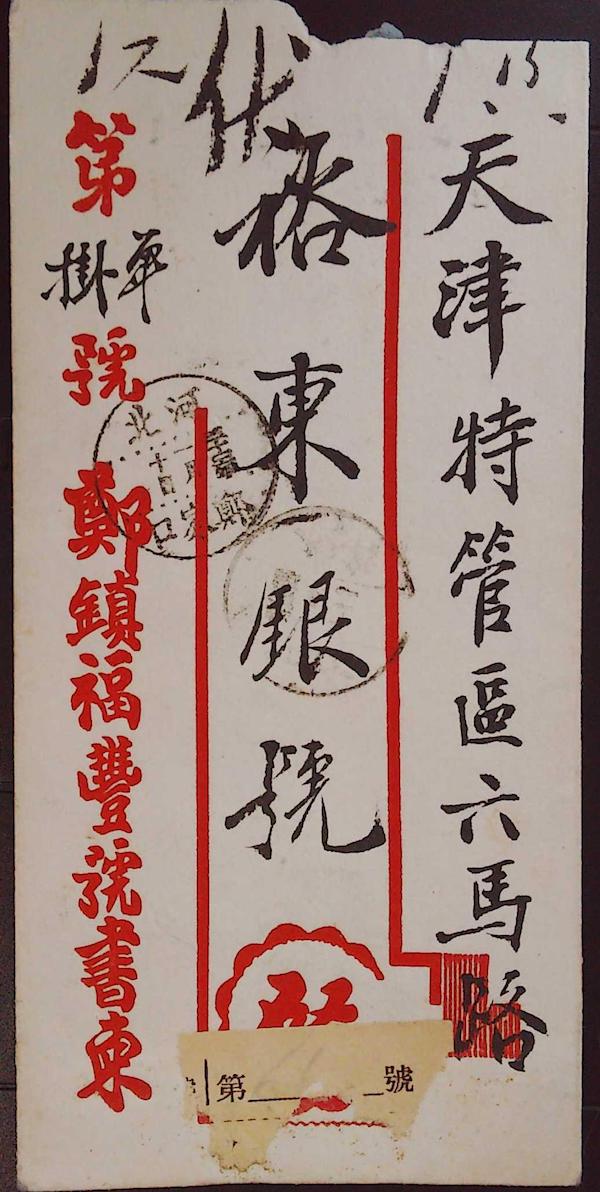 天津特管區六馬路
裕東銀號
第單掛號
鄭鎮福豐號書柬
河北
鄭家口
第____號